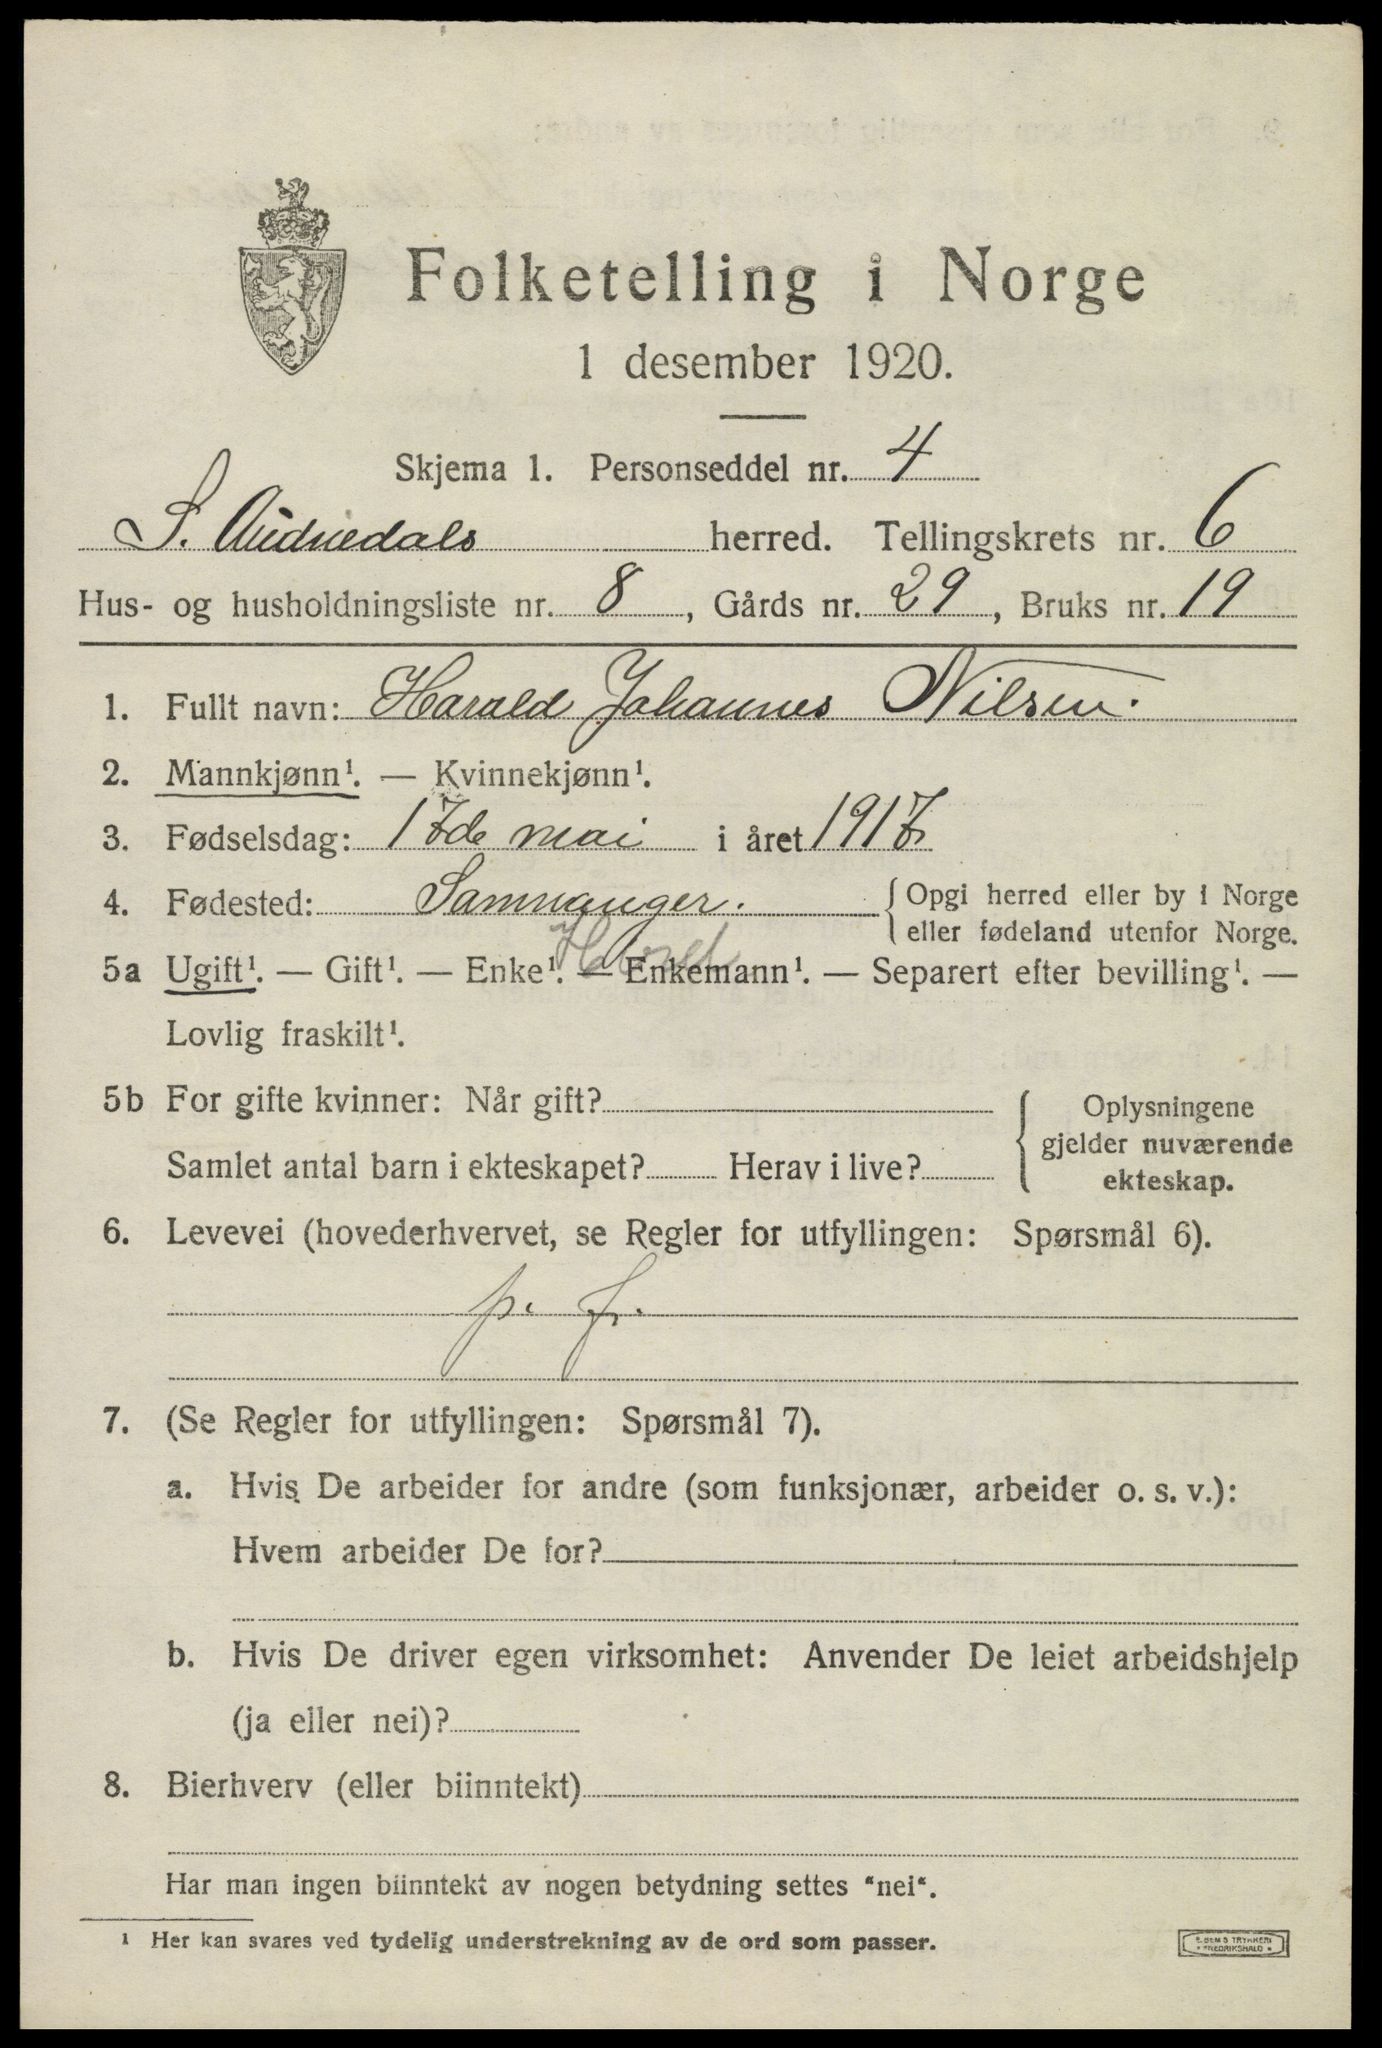 Folketelling i Norge
1 desember 1920.
Skjema 1. Personseddel nr. 4
S. Audnedals herred. Tellingskrets nr. 6
Hus- og husholdningsliste nr. 8, Gårds nr. 29, Bruks nr. 19
1. Fullt navn: Harald Johannes Nilsen.
2. Mannkjønn¹. — Kvinnekjønn¹.
3. Fødselsdag: 17de mai i året 1917
4. Fødested: Samnanger. { Opgi herred eller by i Norge
eller fødeland utenfor Norge.
Hord
5a Ugift¹. — Gift¹. — Enke¹. — Enkemann¹. — Separert efter bevilling¹. —
Lovlig fraskilt¹.
5b For gifte kvinner: Når gift? { Oplysningene
gjelder nuværende
Samlet antal barn i ekteskapet? Herav i live? ekteskap.
6. Levevei (hovederhvervet, se Regler for utfyllingen: Spørsmål 6).
p. f.
7. (Se Regler for utfyllingen: Spørsmål 7).
a. Hvis De arbeider for andre (som funksjonær, arbeider o. s. v.):
Hvem arbeider De for?
b. Hvis De driver egen virksomhet: Anvender De leiet arbeidshjelp
(ja eller nei)?
8. Bierhverv (eller biinntekt)
Har man ingen biinntekt av nogen betydning settes "nei".
¹ Her kan svares ved tydelig understrekning av de ord som passer.
TRYKKERI
FREDRIKSHALD